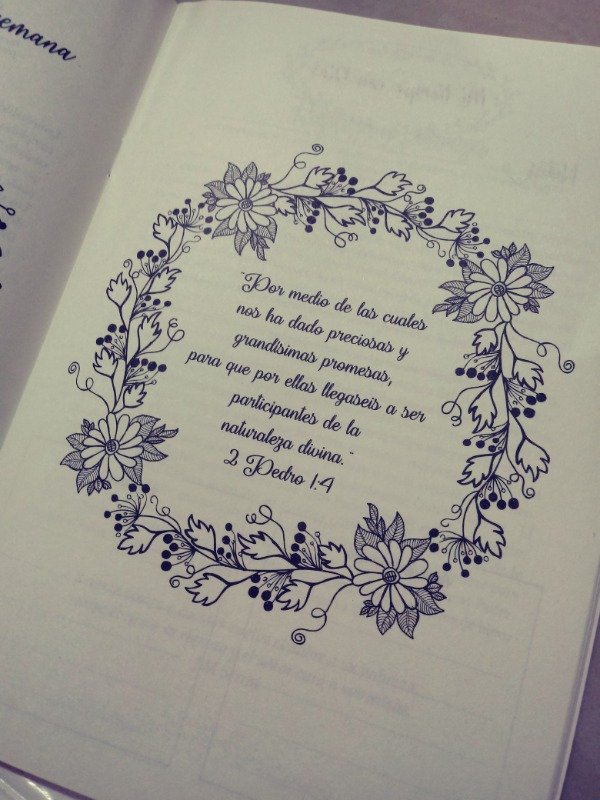 emana
"Por medio de las cuales
nos ha dado preciosas y
grandísimas promesas,
para que por ellas llegaseis a ser
participantes de la
naturaleza divina."
2 Pedro 1:4